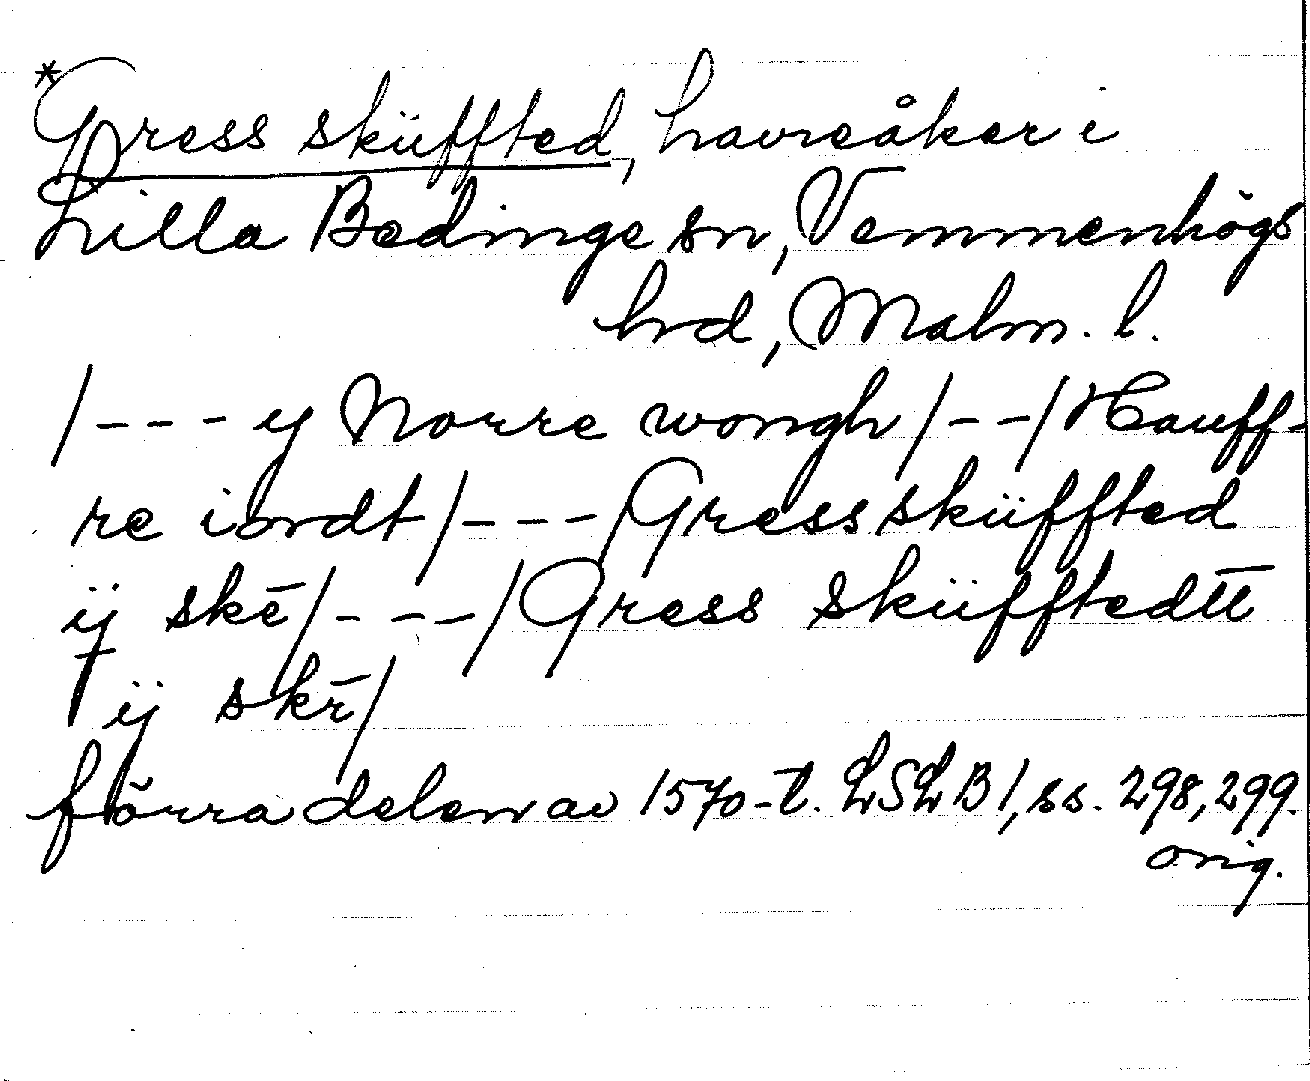 *Gress sküffted, havreåker i
Lilla Bedinge sn, Vemmenhögs
hrd, Malm. l.
/---y Norre wongh/--/Hauff-
re iordt/---/Gress sküffted
ÿ skē/---/Gress sküfftedtt
ÿ skr̄/
förra delen av 1570-t. LSLB 1, ss. 298, 299.
orig.